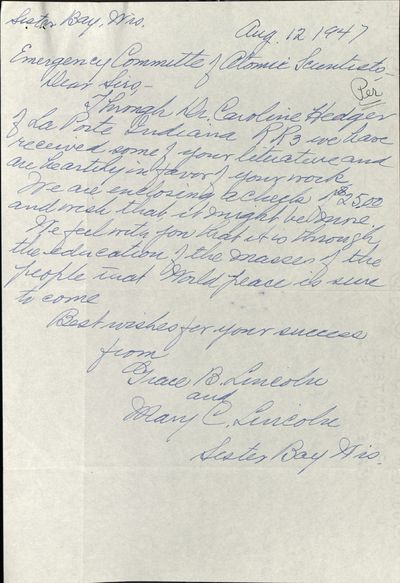 Sister Bay, Wis.
Aug. 12 1947
Emergency Committee of Atomic Scientists-
Dear Sirs-
Per
Through Dr. Caroline Hedger
of La Porte Indiana R.R3 we have
received some of your literature and
are heartily in favor of your work
We are enclosing a check of $25.00
and wish that it might be more
We feel with you that it is through
the education of the masses of the
people that World peace is sure
to come
Best wishes for your success
from
Grace B. Lincoln
and
Mary C. Lincoln
Sister Bay Wis.